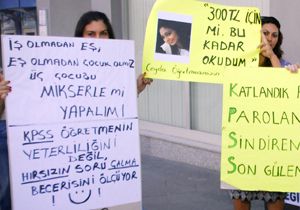 İŞ OLMADAN EŞ,
EŞ OLMADAN ÇOCUK OLMAZ
ÜÇ ÇOCUĞU
MİKSERLE Mİ
YAPALIM!
KPSS ÖĞRETMENİN
YETERLİLİĞİNİ
DEĞİL,
HIRSIZIN SORU ÇALMA
BECERİSİNİ ÖLÇÜYOR!
"300TL İÇİN
Mİ BU
KADAR
OKUDUM"
KATLANDIK
PAROLAN
SİNDİREN
SON GÜLEN